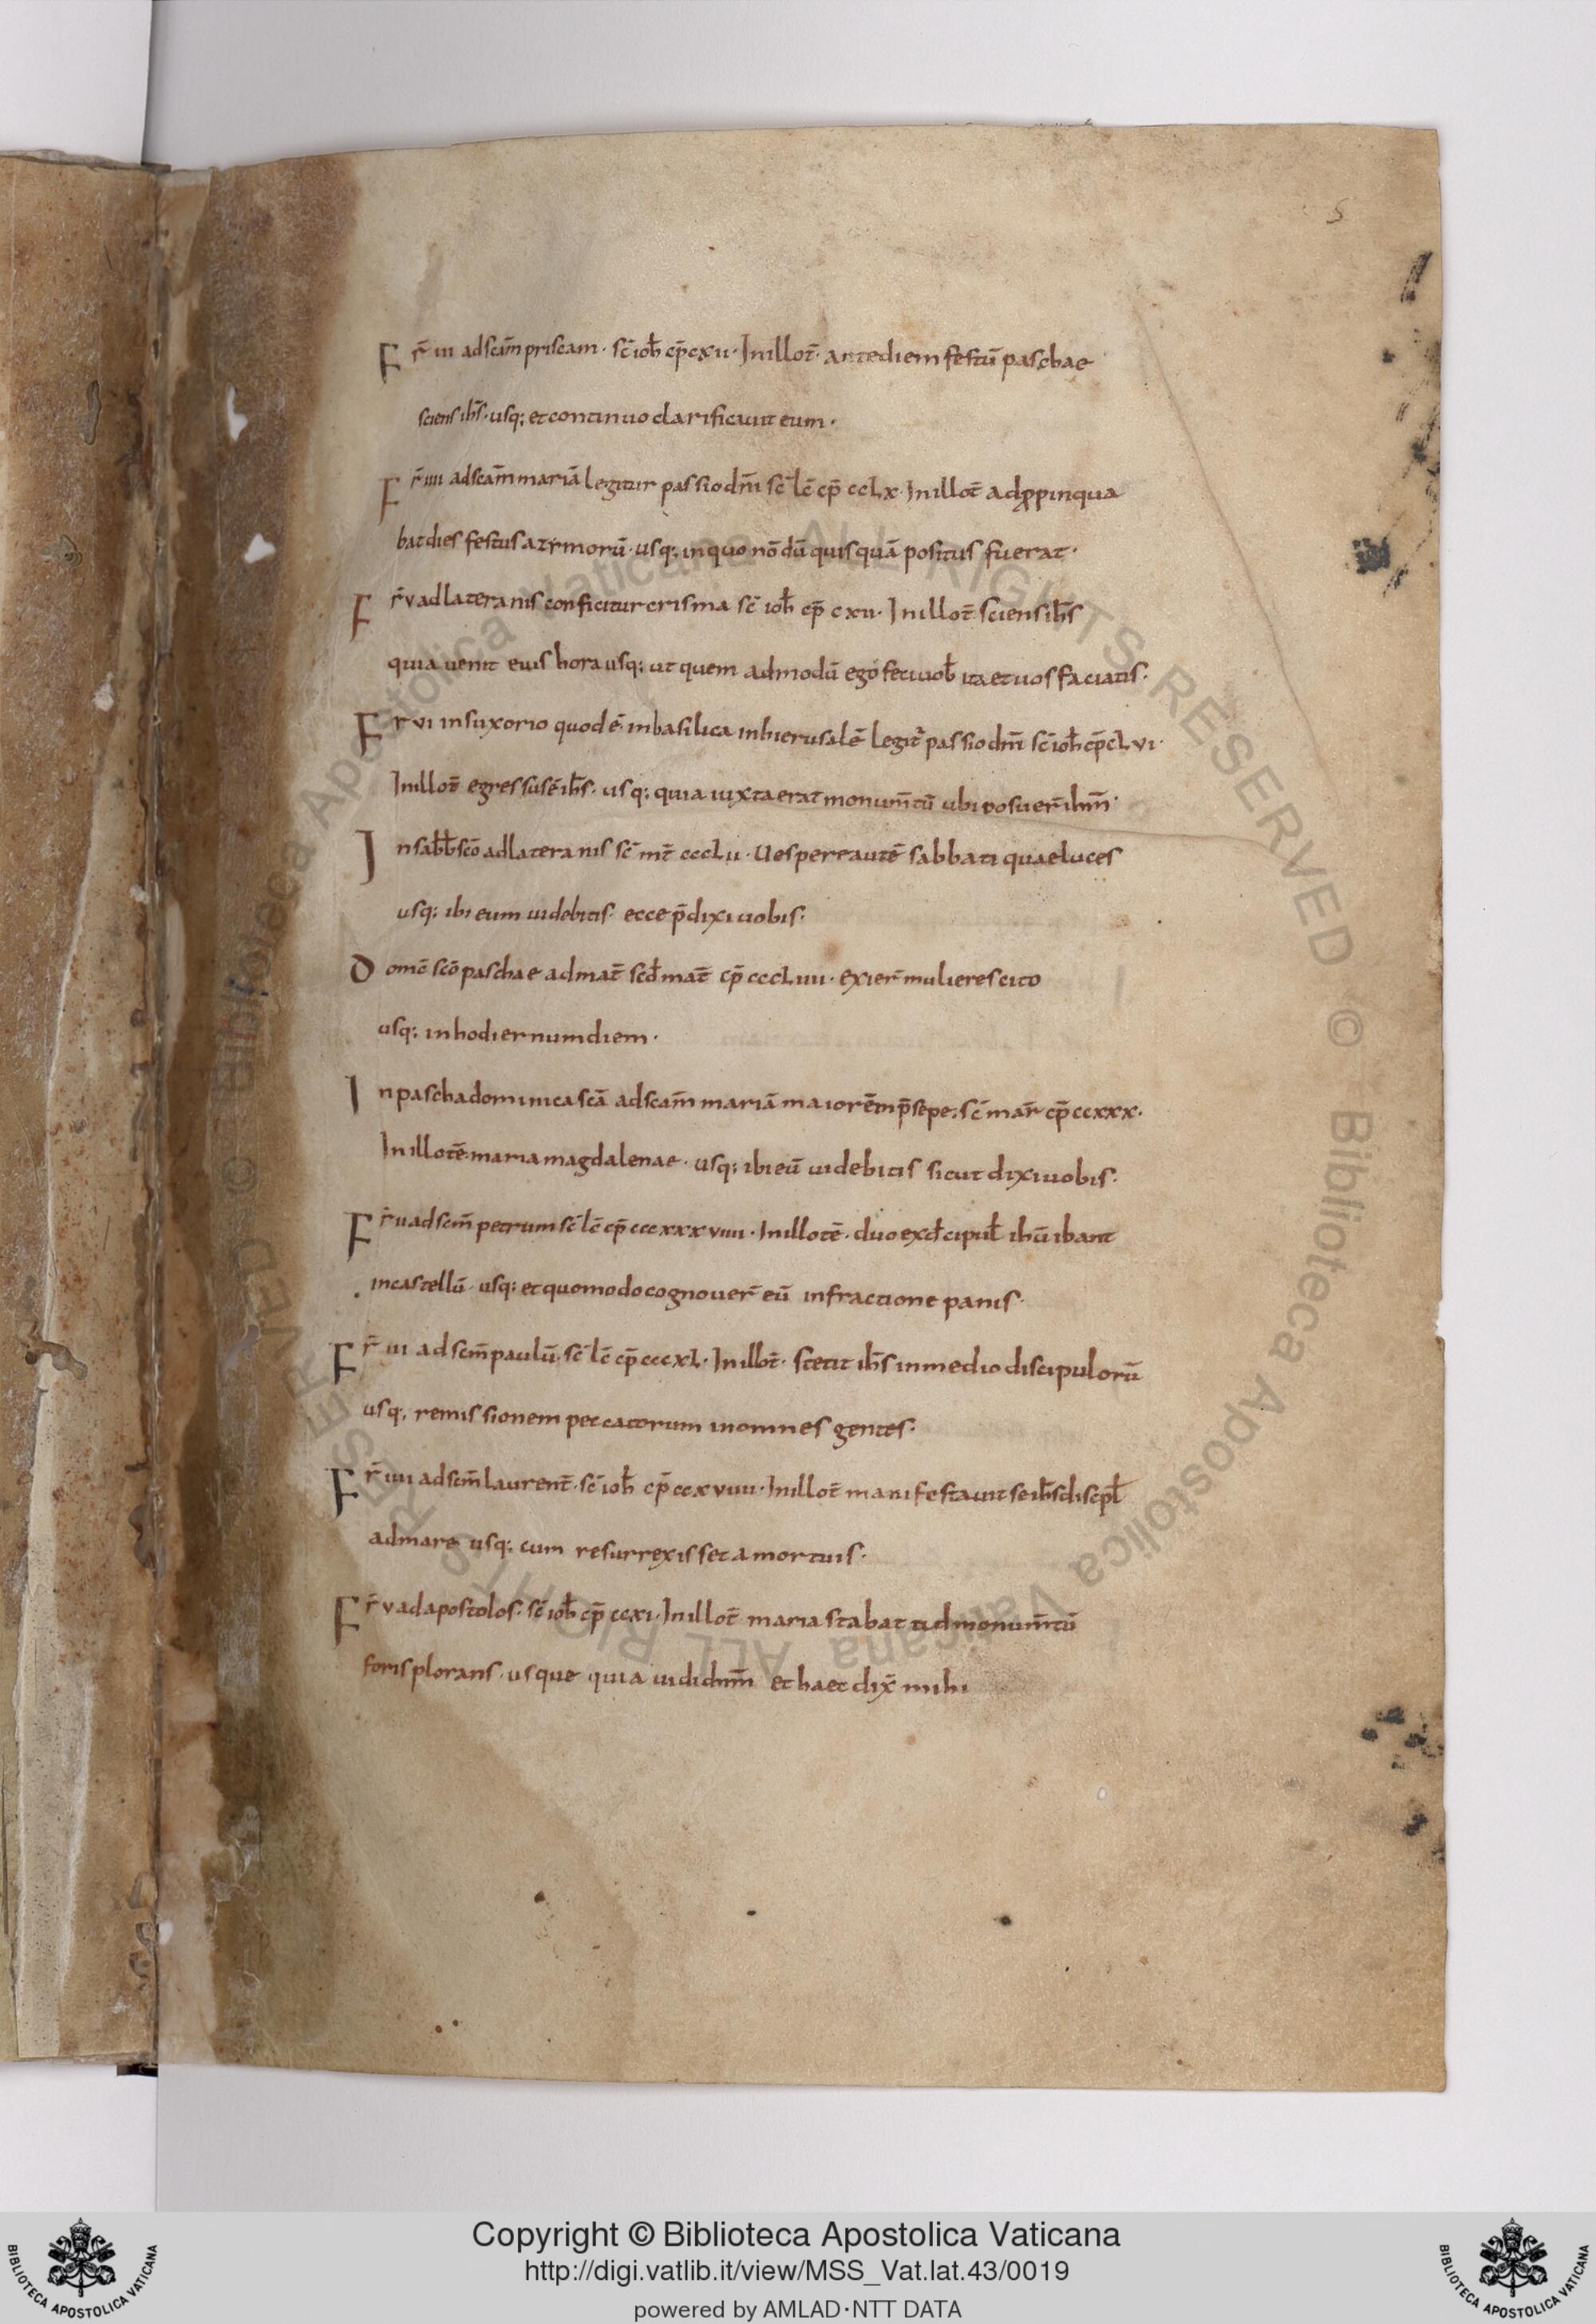 5
Fr̄ iii ad scam̄ priscam · sc̄ ioh̄ cp̄ cxii · In illot̄ · ante diem festū paschae
sciens ih̄s · usq; et continuo clarificauit eum ·
Fr̄ iiii ad scam̄ mariā legitur passio dn̄i sc̄ lc̄ cp̄ cclx · In illot̄ adp̱pinqua
bat dies festus azimorū · usq; in quo nōdū quisquā positus fuerat ·
Fr̄ v ad lateranis conficitur crisma sc̄ ioh̄ cp̄ cxii · In illot̄ sciens ih̄s
quia uenit eius hora usq; ut quem admodū ego feci uob̄ ita et uos faciatis ·
Fr̄ vi in suxorio quod ē in basilica in hierusalē legit̄ passio dn̄i sc̄ ioh̄ cp̄ clvi ·
In illot̄ egressus ē ih̄s · usq; quia iuxta erat monum̄tū ubi posuer̄ ihm̄ ·
In sabb̄ scō ad lateranis sc̄ mt̄ ccclii · Uespere autē sabbati quae luces
usq; ibi eum uidebitis · ecce p̄dixi uobis ·
Domc̄ scō paschae ad mat̄ scd̄ mat̄ cp̄ cccliiii · exier̄ mulieres cito
usq; in hodiernum diem ·
In pascha dominica scā ad scam̄ mariā maiorē m p̄sepe; sc̄ mar̄ cp̄ ccxxx ·
In illotē maria magdalenae · usq; ibi eū uidebitis sicut dixi uobis ·
Fr̄ ii ad scm̄ petrum sc̄ lc̄ cp̄ cccxxxviiii · In illotē · duo ex d̄cipul̄ ihū ibant
in castellū · usq; et quomodo cognouer̄ eū in fractione panis ·
Fr̄ iii ad scm̄ paulū · sc̄ lc̄ cp̄ cccxl · In illot̄ · stetit ih̄s in medio discipulorū
usq; remissionem peccatorum in omnes gentes ·
Fr̄ iiii ad scm̄ laurent̄ · sc̄ ioh̄ cp̄ ccxviiii · In illot̄ manifestauit se ih̄s discpl̄
ad mare usq; cum resurrexisset a mortuis ·
Fr̄ v ad apostolos · sc̄ ioh̄ cp̄ ccxi · In illot̄ maria stabat ad monum̄tū
foris plorans · usque quia uidi dnm̄ et haec dix̄ mihi
Copyright © Biblioteca Apostolica Vaticana
http://digi.vatlib.it/view/MSS_Vat.lat.43/0019
powered by AMLAD·NTT DATA
BIBLIOTECA APOSTOLICA VATICANA
BIBLIOTECA APOSTOLICA VATICANA